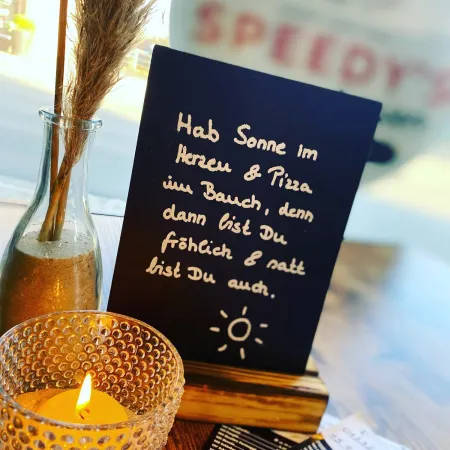 SPEEDY'S
Hab Sonne im
Herzen & Pizza
im Bauch, denn
dann bist Du
fröhlich & satt
bist Du auch.